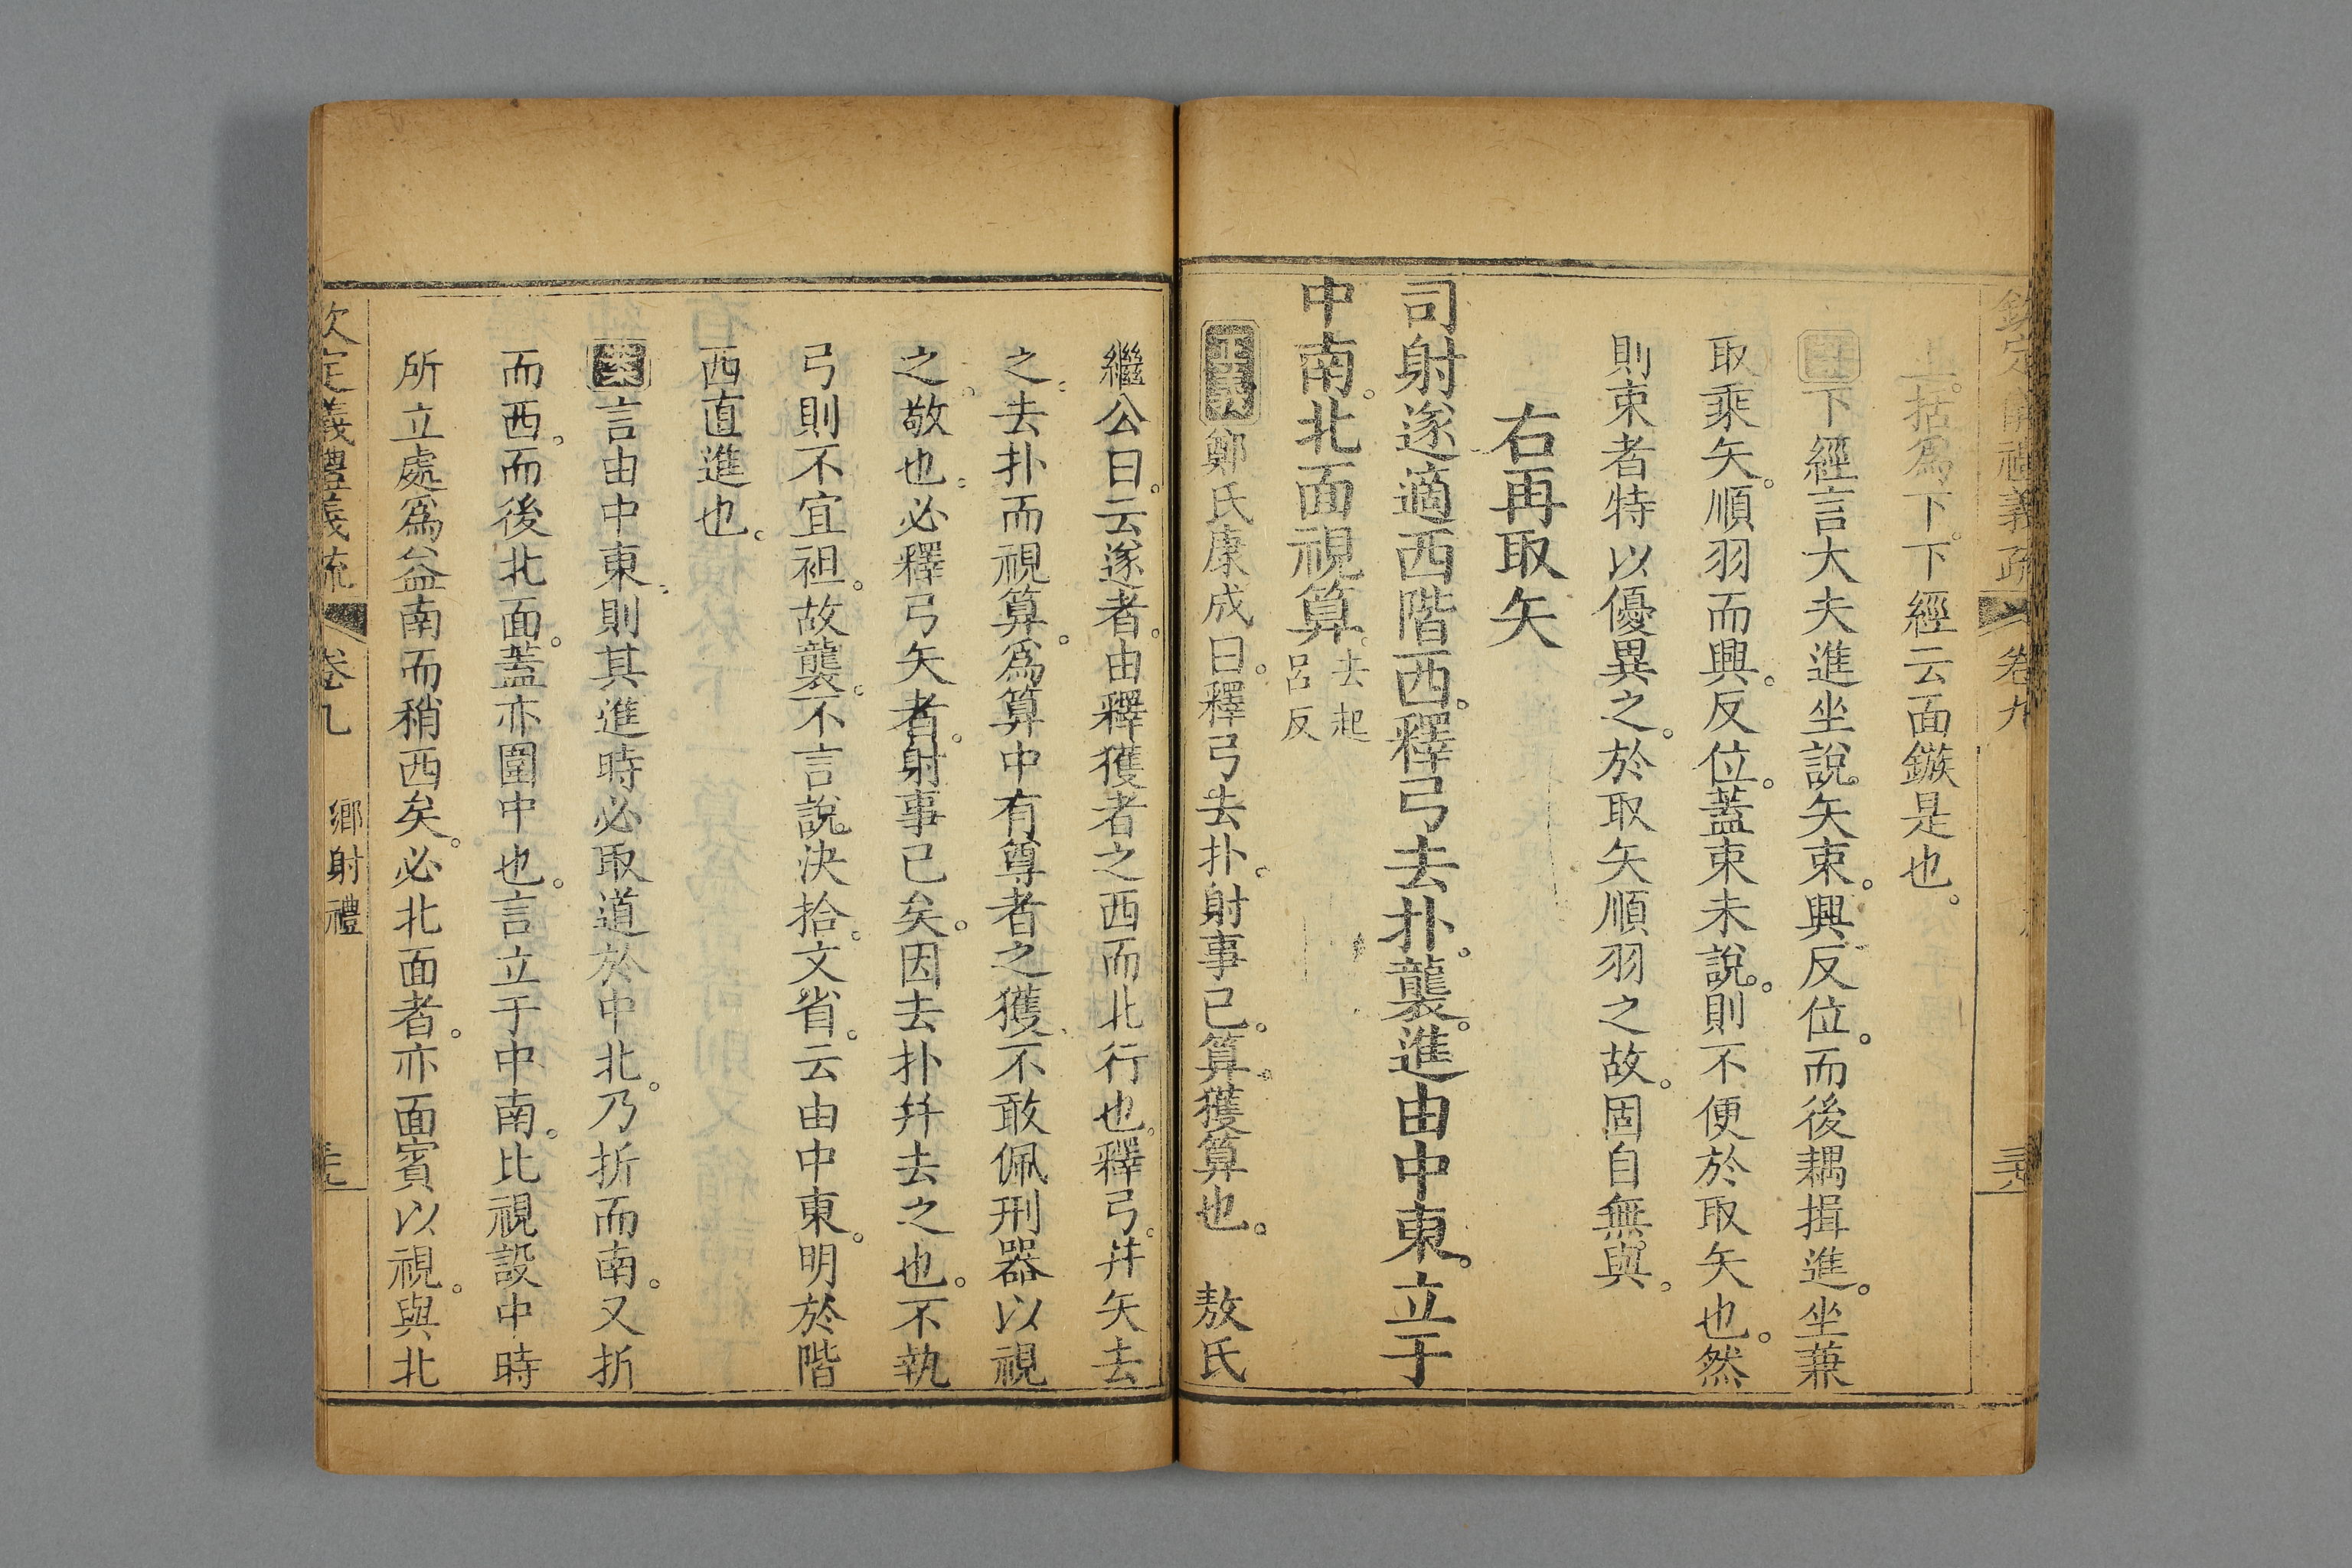 上。括爲下。下經云面鏃是也。
下經言大夫進坐說矢束。興反位。而後耦揖進。坐兼
取乘矢。順羽而興。反位。蓋束未說。則不便於取矢也。然
則束者特以優異之。於取矢順羽之故。固自無與。
右再取矢
司射遂適西階西。釋弓去扑。襲。進由中東。立于
中南。北面視算。去起呂反
正義鄭氏康成曰。釋弓去扑。射事已。算。獲算也。 敖氏
欽定儀禮義疏 卷九
繼公曰。云遂者。由釋獲者之西而北行也。釋弓。幷矢去
之。去扑而視算。爲算中有尊者之獲。不敢佩刑器以視
之。敬也。必釋弓矢者。射事已矣。因去扑幷去之也。不執
弓則不宜袒。故襲。不言說決拾。文省。云由中東。明於階
西直進也。
案言由中東。則其進時必取道於中北。乃折而南。又折
而西。而後北面。蓋亦圍中也。言立于中南。比視設中時
所立處爲益南而稍西矣。必北面者。亦面賓以視。與北
欽定儀禮義疏 卷九 鄉射禮